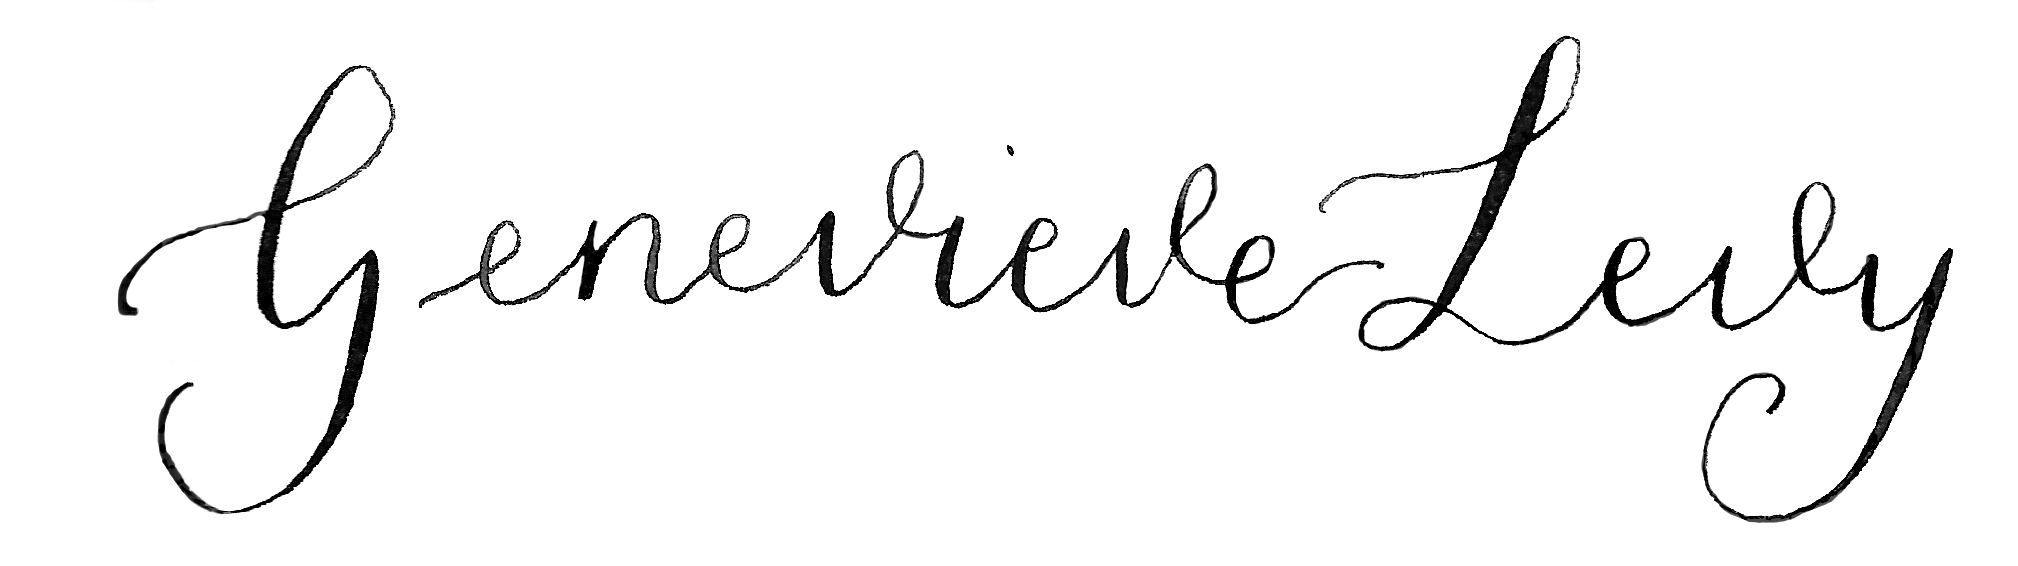 Genevieve Levy